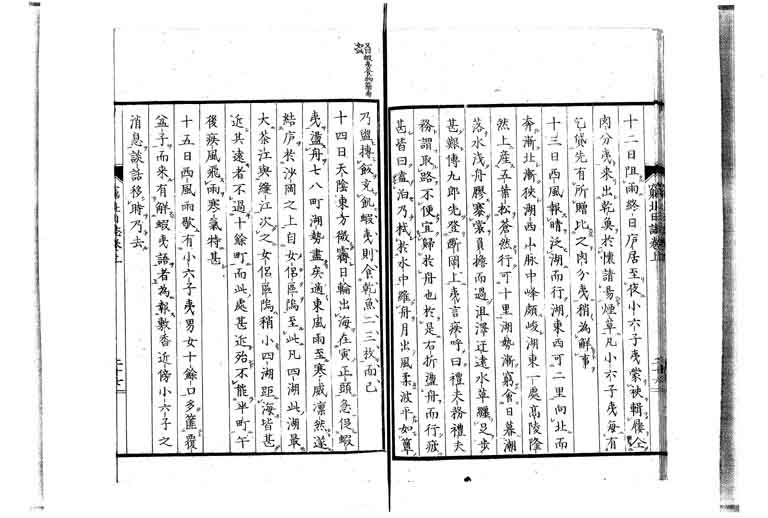 十二日阻雨終日庐居至夜小六子夷蒙被輯雁合
肉分夷来出乾魚於懐請易煙草凡小六子夷每有
乞貸先有所贈比之肉分夷稍為解事
十三日西風報晴泛湖而行湖東西可二里向北而
奔漸北漸狹湖西小脉中峰頗峻湖東一處髙陵隆
然上産五葉松蒼然行可十里湖勢漸窮會日暮潮
落水浅舟膠褰裳負擔而過沮澤迂遠水草纏足步
甚艱傳九郎先登断岡上夷言疾呼曰禮夫務禮夫
務謂取路不便宜歸於舟也於是右折盪舟而行疲
甚皆曰盍泊乃杙於水中維舟月出風柔波平如簟
乃盥摶飯交飢蝦夷則食乾魚二三枚而已
十四日天陰東方微霽日輪出海在寅正頭急促蝦
夷盪舟七八町湖勢盡矣適東風雨至寒威凛然遂
結庐於沙岡之上自女侶區鴻至此凡四湖此湖最
大茶江與纏江次之女侶區鴻稍小四湖距海皆甚
近其遠者不過十餘町而此處甚近殆不能半町午
後疾風飛雨寒氣特甚
十五日西風雨歇有小六子夷男女十餘口多簏覆
盆子而来有解蝦夷語者為報數香近傍小六子之
消息談話移時乃去